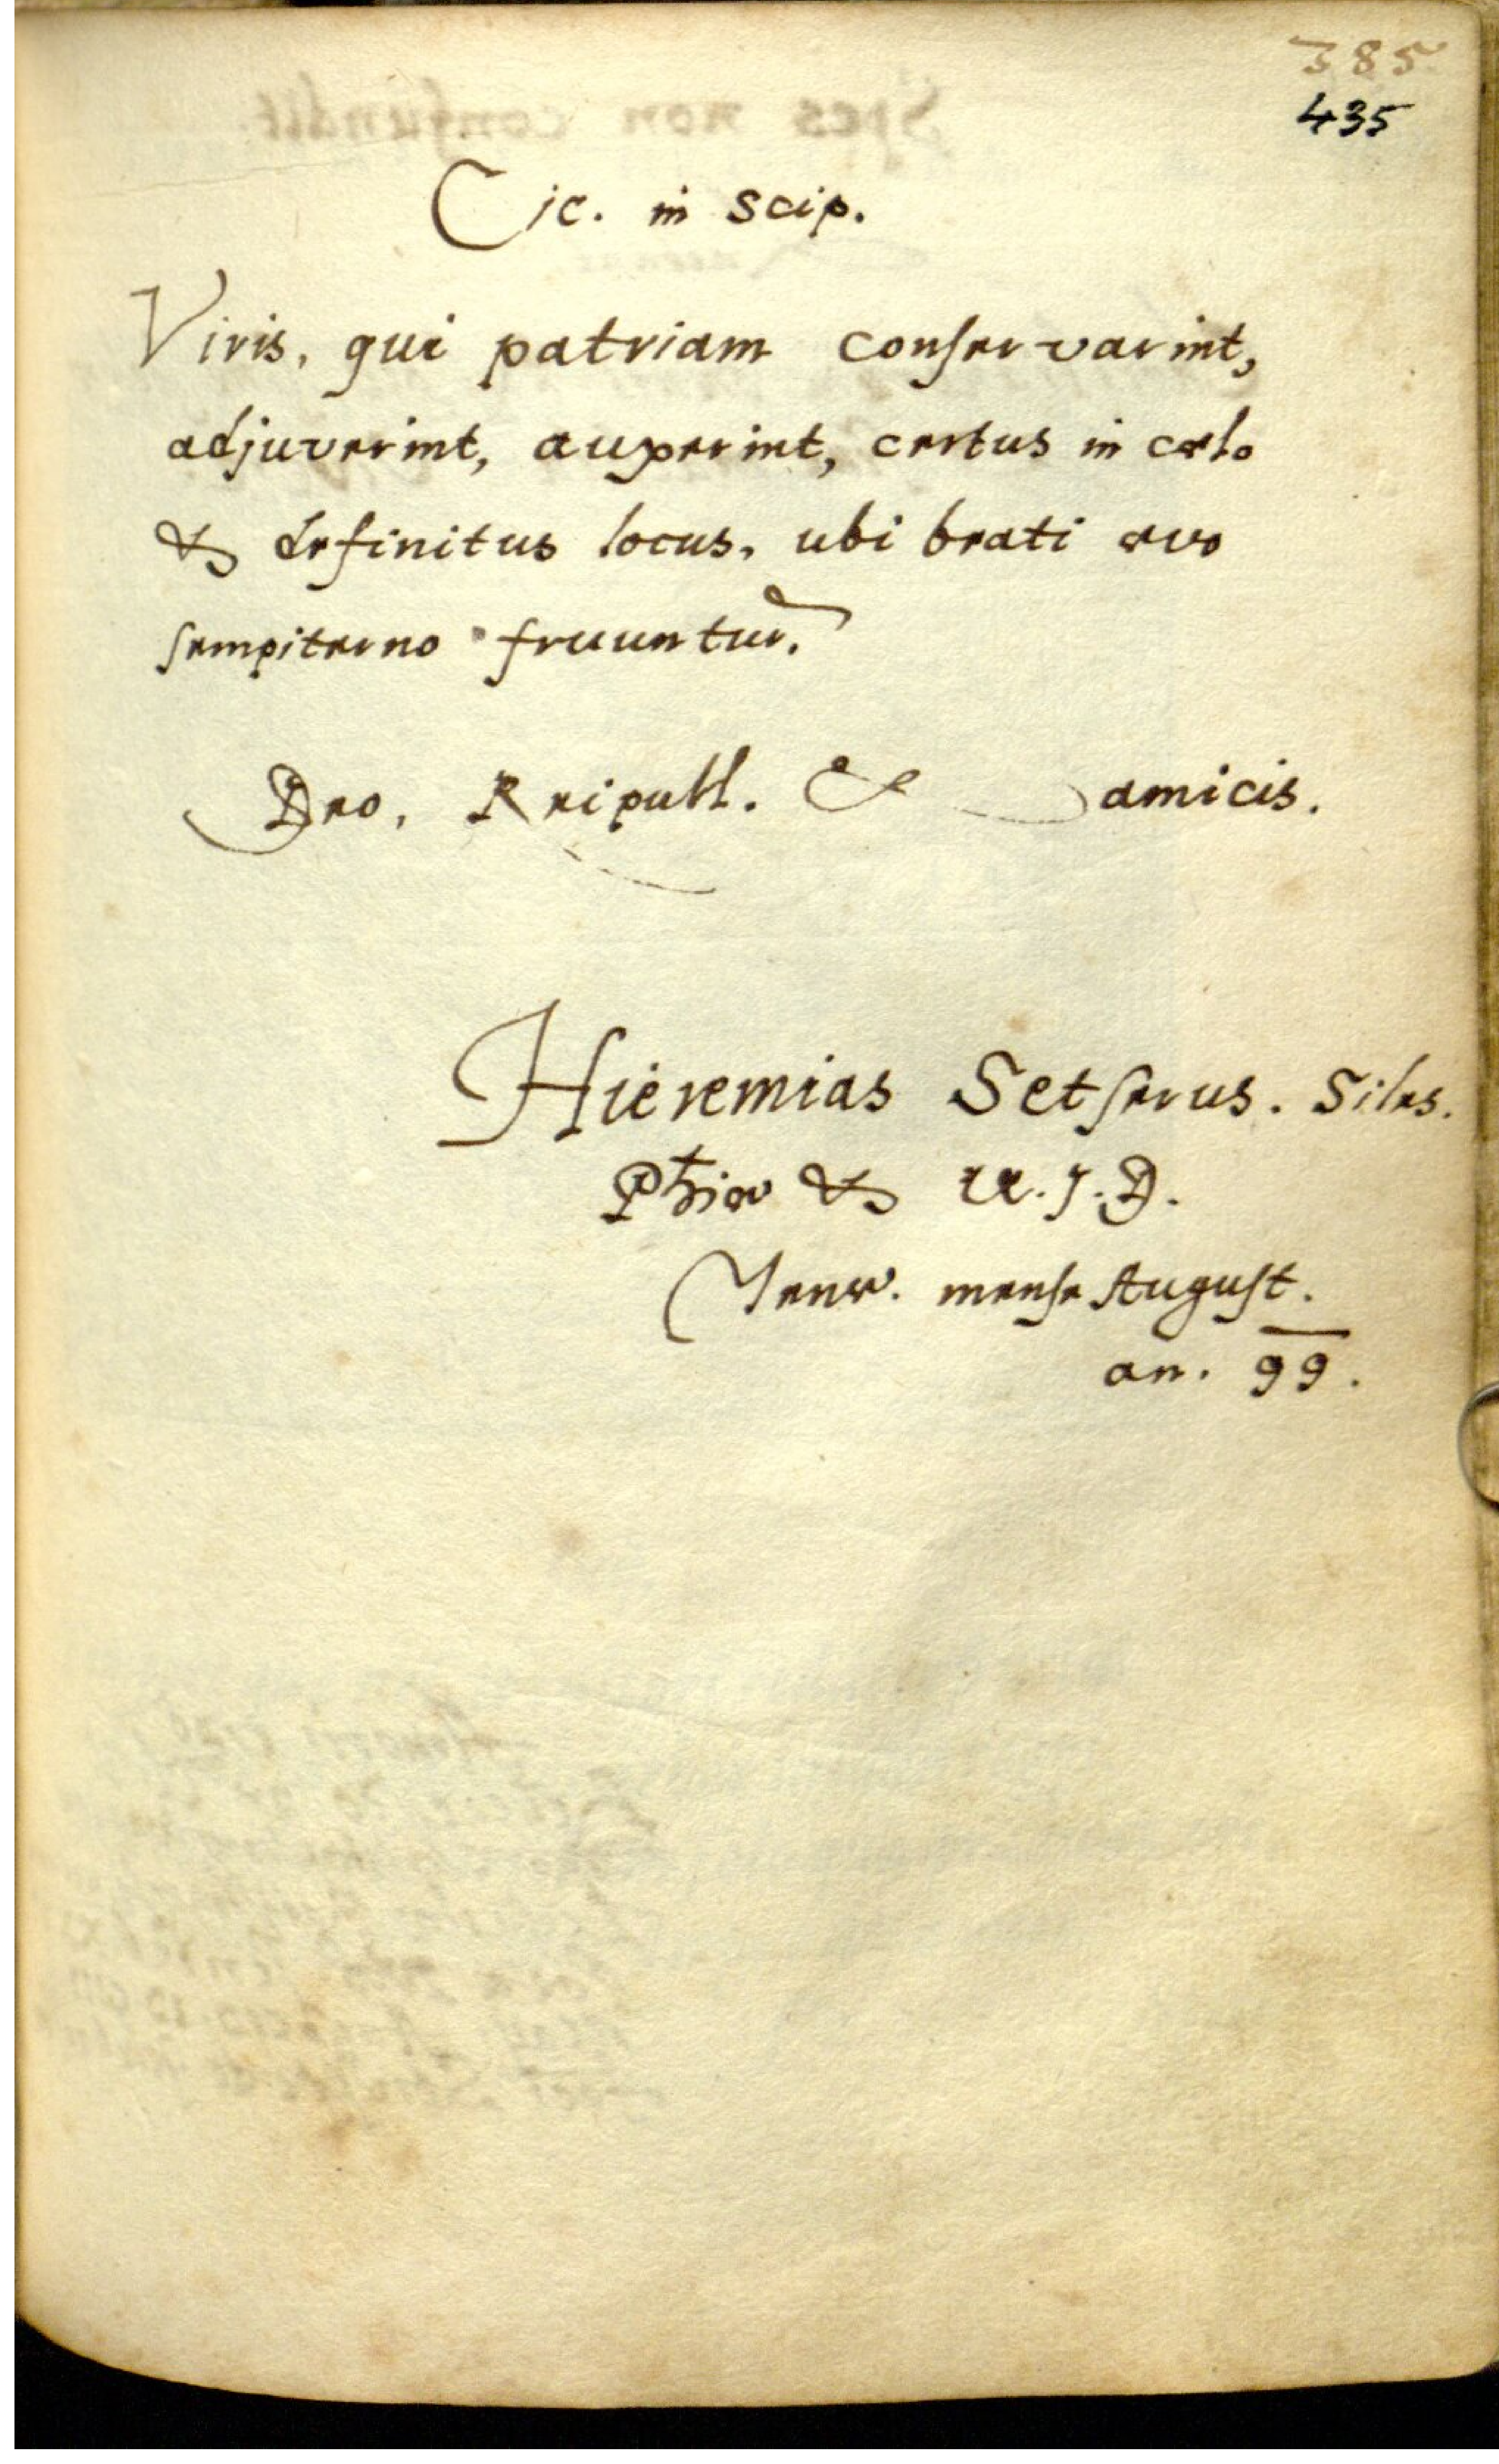 385
435
Cic. in Scip.
Viris, qui patriam conservarint,
adjuverint, auxerint, certus in cælo
& definitus locus, ubi beati ævo
sempiterno fruuntur.
Deo, Reipubl. & amicis.
Hieremias Setserus. Siles.
Phiæ & U. J. D.
Jenæ. mense August.
an. 99.